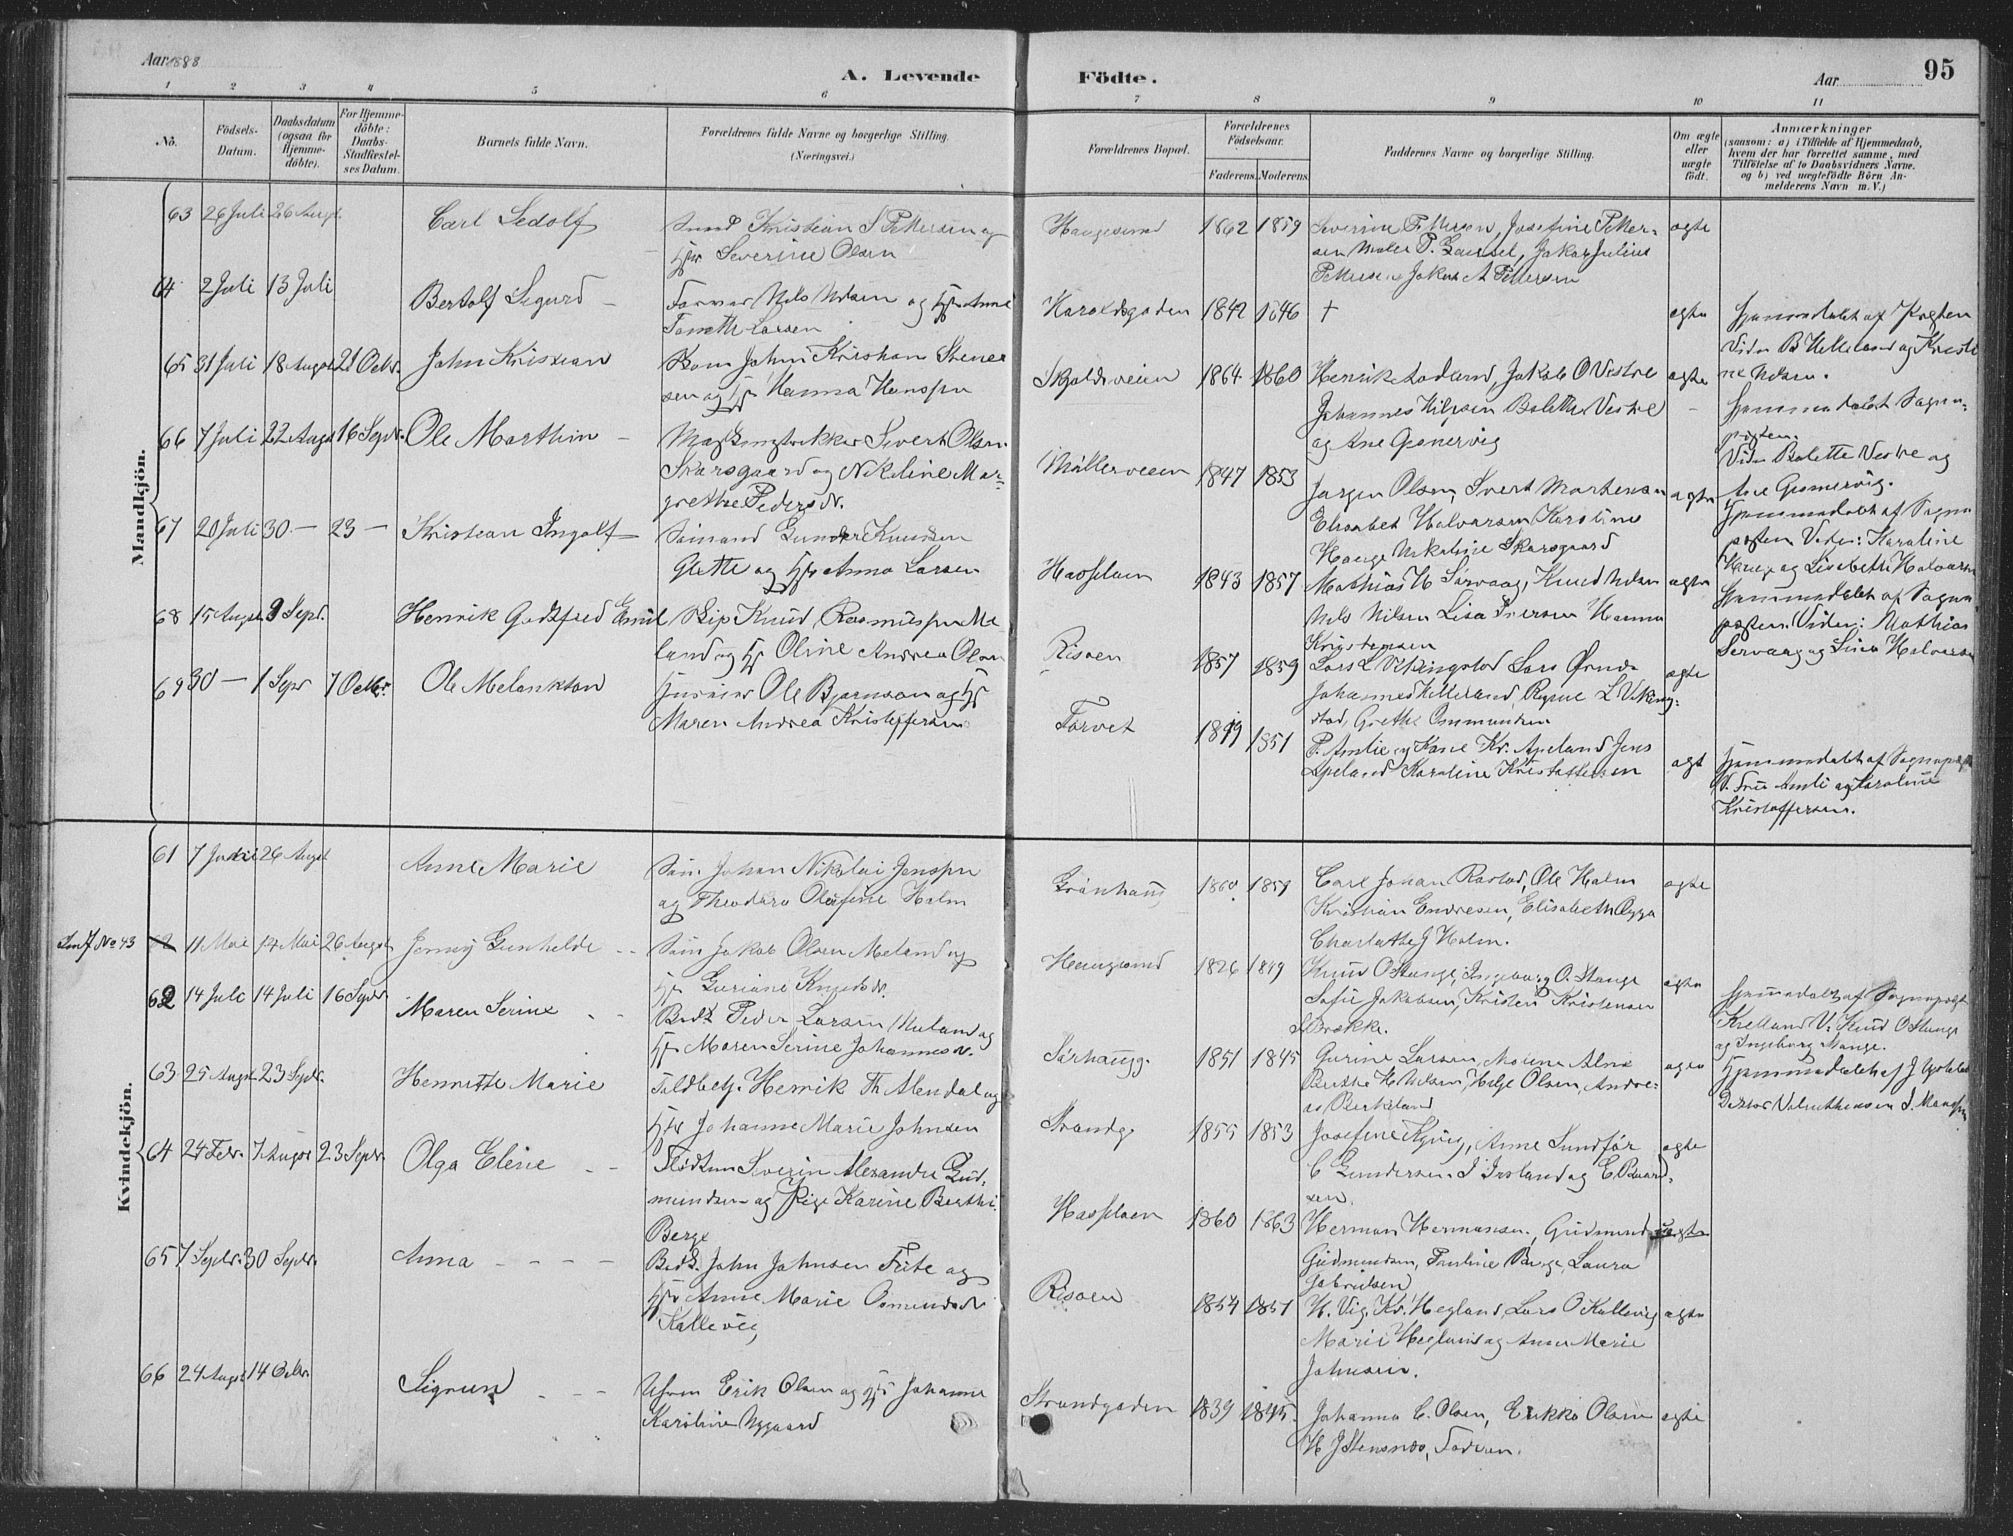 Aar 1888
A. Levende
Födte.
Aar
95
1 2 3 4 5 6 7 8 9 10 11
No.
Födsels-
Datum.
Daabsdatum
(ogsaa for
Hjemme-
döbte).
For Hjemme-
döbte:
Daabs-
Stadfæstel-
ses Datum.
Barnets fulde Navn.
Forældrenes fulde Navne og borgerlige Stilling.
(Næringsvei.)
Forældrenes Bopæl.
Forældrenes
Födselsaar.
Faderens. Moderens.
Faddernes Navne og borgerlige Stilling.
Om ægte
eller
uægte
födt.
Anmærkninger
(saasom: a) i Tilfælde af Hjemmedaab,
hvem der har forrettet samme, med
Tilföielse af to Daabsvidners Navne,
og b) ved uægtefödte Börn An-
melderens Navn m. V.)
Mandkjön.
63 26 Juli 26 Augst
Carl Sedolf
Kristian S Pettersen og
Severine Olsen
Haugesund
1862 1859
Severine Pettersen, Josefine Petter-
sen Maler P. Jakob Julius
Jakob A Pettersen
ægte
64 2 Juli 13 Juli
Bertolf Sigurd
Farver Nils Nilsen og Hst Anne
Larsen
Haraldsgaden
1842 1846
+
ægte
Hjemmedøbt af Presten
Vidn B Helleland og Kristi
ne Nilsen.
65 31 Juli 18 Augst 21 Octbr.
John Kristian
John Kristian Stener
sen og Hst Hanna Hansen
Skjoldsveien
1864 1860
Henrik Lodland, Jakob O Vestre
Johannes Nilsen Bolette Vestre
og Ane Gismervig
ægte
Hjemmedøbt Sogne-
presten.
Vidn Bolette Vestre og
Ane Gismervig.
66 7 Juli 22 Augst 16 Septr.
Ole Marthin
Sivert Olsen
Skarsgaard og Nikoline Mar-
grethe Pedersdr.
Møllerveien
1847 1853
Jørgen Olsen, Sivert Mortensen
Elisabet Halvorsen Karoline
Hauge Nikoline Skarsgaard
ægte
Hjemmedøbt af Sogne
presten Vidn: Karoline
Hauge og Lisebeth Halvorsen
67 20 Juli 30 — 23 —
Kristian Ingolf
Sømand Gunder Knudsen
Glette og Hst Anna Larsen
Hasseløen
1843 1857
Mathias H Sørvaag, Knud Nilsen
Nils Nilsen Lisa Iversen Hanna
Kristensen
ægte
Hjemmedøbt af Sogne
presten. Vidn: Mathias
Sørvaag og Lina Halvorsen
68 15 Augst 9 Sept.
Henrik Godtfred Emil
Skip Knud Rasmussen Me
land og Hst Oline Andrea Olsen
Risøen
1857 1859
Lars L Vikingstad Lars Ørnes
Johannes Helleland, Rasmus L Viking-
stad, Grethe Ommundsen
ægte
69 30 — 1 Sept 7 Octbr.
Ole Melankton
Ole Bjørnson og Hst
Maren Andrea Kristoffersen
Torvet
1849 1851
P. Amlie og Kone Kr. Apeland Jens
Apeland Karoline Kristoffersen
ægt
Hjemmedøbt af Sognepr
V. Fru Amli og Karoline
Kristoffersen.
Kvindekjön.
61 7 Juni 26 Augst
Anne Marie
Søm. Johan Nikolai Jensen
og Theodora Olefine Holm
Grønhaug
1860 1859
Carl Johan Rostad, Ole Holm
Kristian Endresen, Elisabeth Oppa
Charlotte J Holm.
ægte
Jmf No 43
62 11 Mai 14 Mai 26 Augst
Jenny Gunhilde
Søm Jakob Olsen Meland og
Hst Guriane Knudsdr.
Haugesund
1826 1849
Knud O Stange, Ingeborg O. Stange
Sofie Jakobsen, Kristen Kristensen
Brække.
ægte
Hjemmedøbt af Sognepræst
Knud O Stange
og Ingeborg Stange.
62 14 Juli 14 Juli 16 Septr.
Maren Serine
Peder Larsen Meland og
Hst Maren Serine Johannesdr.
Sørhaugg.
1851 1845
Gurine Larsen, Malene Alne
Berthe K Nilsen, Helje Olsen, Andre-
as Berkeland
ægte
Hjemmedøbt af J
Doktor Valentinsen
63 25 Augst 23 Septr.
Henriette Marie
Toldbetj. Henrik Th Alendal og
Hst Johanne Marie Johnsen
Strandg.
1855 1853
Josefine Kyvig, Anne Sundfør
C Gundersen og E Baard-
sen.
ægte
64 24 Febr. 7 Augst 23 Septr.
Olga Eline
Severin Alexander Gud-
mundsen og Pige Karine Berthe
Berge
Hasseløen
1860 1863
Herman Hermansen, Gudmund
Gudmundsen, Pauline Berge, Laura
Gabrielsen
uægte
65 7 Septr. 30 Septr.
Anna
John Johnsen Feite og
Hst Anne Marie Osmundsdr
Kallevig
Risøen
1854 1851
H. Vig, Kr. Hegland, Lars O Kallevig
Marie Hegland og Anne Marie
Johnsen.
ægte
66 24 Augst 14 Octbr.
Sigrun
Erik Olsen og Hst Johanne
Karoline Nygaard
Strandgaden
1839 1845
Johanna C. Olsen, Erikka Olsen
H J Stensnes,
ægte